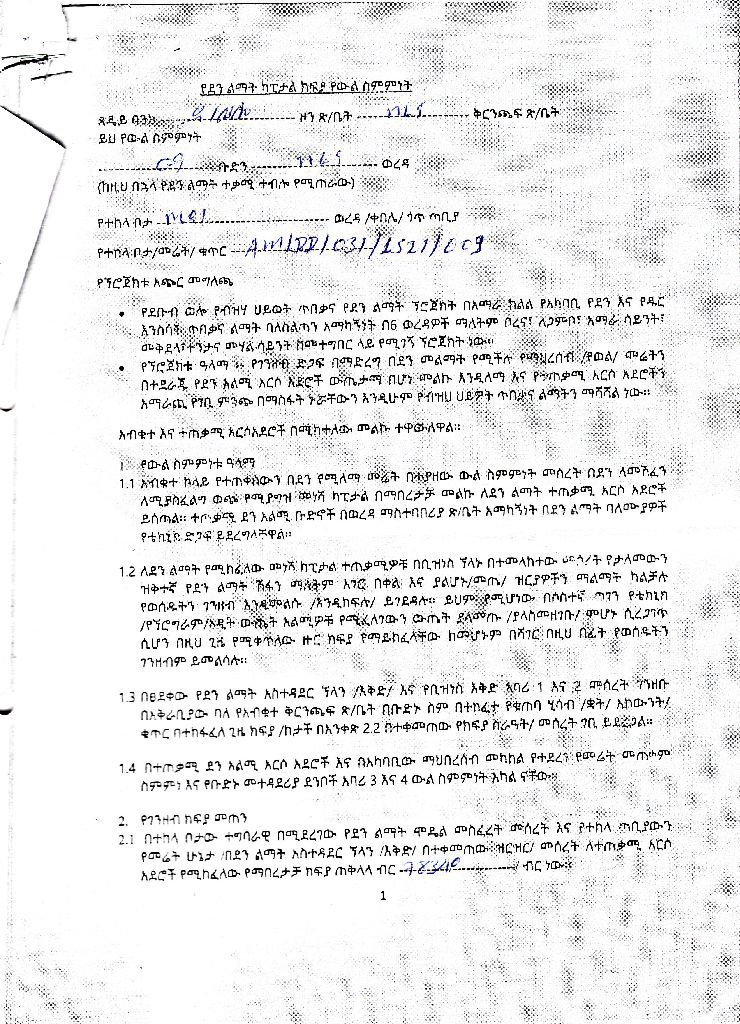 የደን ልማት ካፒታል ክፍያ የውል ስምምነት
ጸዴይ ባንክ ዞን ጽ/ቤት ቅርንጫፍ ጽ/ቤት
ይህ የውል ስምምነት
09 ቡድን ወረዳ
(ከዚህ በኋላ የደን ልማት ተቃሚ ተብሎ የሚጠራው)
የተከላ ቦታ ወረዳ /ቀበሌ/ ጎጥ ጣቢያ
የተከላ ቦታ/መሬት/ ቁጥር AM/DD/031/1521/009
የፕሮጀክቱ አጭር መግለጫ
• የደቡብ ወሎ የብዝሃ ህይወት ጥበቃና የደን ልማት ፕሮጀክት በአማራ ክልል የአካባቢ የደን እና የዱር
እንስሳት ጥበቃና ልማት ባለስልጣን አማካኝነት በ6 ወረዳዎች ማለትም ቦረና፣ ለጋምቦ፣ አማራ ሳይንት፣
መቅደላ፣ ተንታና መሃል ሳይንት በመተግበር ላይ የሚገኝ ፕሮጀክት ነው።
• የፕሮጀክቱ ዓላማ ፡፡ የገንዘብ ድጋፍ በማድረግ በደን መልማት የሚችሉ የማህረሰብ /የወል/ መሬትን
በተደራጁ የደን አልሚ አርሶ አደሮች ውጤታማ በሆነ መልኩ እንዲለማ እና የተጠቃሚ አርሶ አደሮችን
አማራጪ የገቢ ምንጭ በማስፋት ኑሯቸውን እንዲሁም የብዝሀ ህይዎት ጥበቃና ልማትን ማሻሻል ነው።
አብቁተ እና ተጠቃሚ አርሶአደሮች በሚከተለው መልኩ ተዋውለዋል።
1 የውል ስምምነቱ ዓላማ
1.1 አብቁተ ከላይ የተጠቀሰውን በደን የሚለማ መሬት በተያዘው ውል ስምምነት መሰረት በደን ለመሸፈን
ለሚያስፈልግ ወጪ የሚያግዝ መነሻ ካፒታል በማበረታቻ መልኩ ለደን ልማት ተጠቃሚ አርሶ አደሮች
ይሰጣል። ተጠቃሚ ደን አልሚ ቡድኖች በወረዳ ማስተባበሪያ ጽ/ቤት አማካኝነት በደን ልማት ባለሙያዎች
የቴክኒክ ድጋፍ ይደረግላቸዋል።
1.2 ለደን ልማት የሚከፈለው መነሻ ካፒታል ተጠቃሚዎቹ በቢዝነስ ፕላኑ በተመላከተው መሰረት የታለመውን
ዝቅተኛ የደን ልማት ሽፋን ማለትም አገር በቀል እና ያልሆኑ/መጤ/ ዝርያዎችን ማልማት ካልቻሉ
የወሰዱትን ገንዘብ እንዲመልሱ /እንዲከፍሉ/ ይገደዳሉ። ይህም የሚሆነው በሶስተኛ ወገን የቴክኒክ
/የፕሮግራም/ኦዲት ውጤት አልሚዎቹ የሚፈለገውን ውጤት ያላመጡ /ያላስመዘገቡ/ ምሆኑ ሲረጋገጥ
ሲሆን በዚህ ጊዜ የሚቀጥለው ዙር ክፍያ የማይከፈላቸው ከመሆኑም በሻገር በዚህ በፊት የወሰዱትን
ገንዘብም ይመልሳሉ።
1.3 በፀደቀው የደን ልማት አስተዳደር ፕላን /እቅድ/ እና የቢዝነስ እቅድ አባሪ 1 እና 2 መሰረት ገንዘቡ
በአቅራቢያው ባለ የአብቁተ ቅርንጫፍ ጽ/ቤት በቡድኑ ስም በተከፈተ የቁጠባ ሂሳብ /ቋት/ አካውንት/
ቁጥር በተከፋፈለ ጊዜ ክፍያ /ከታች በአንቀጽ 2.2 በተቀመጠው የክፍያ ስራዓት/ መሰረት ገቢ ይደረጋል።
1.4 በተጠቃሚ ደን አልሚ አርሶ አደሮች እና በአካባቢው ማህበረሰብ መካከል የተደረገ የመሬት መጠቀም
ስምምነ እና የቡድኑ መተዳደሪያ ደንቦች አባሪ 3 እና 4 ውል ስምምነት አካል ናቸው።
2. የገንዘብ ክፍያ መጠን
2.1 በተከላ ቦታው ተግባራዊ በሚደረገው የደን ልማት ሞዴል መስፈረት መሰረት እና የተከላ ጣቢያውን
የመሬት ሁኔታ /በደን ልማት አስተዳደር ፕላን /እቅድ/ በተቀመጠው ዝርዝር/ መሰረት ለተጠቃሚ አርሶ
አደሮች የሚከፈለው የማበረታቻ ክፍያ ጠቅላላ ብር 78340 / ብር ነው።
1